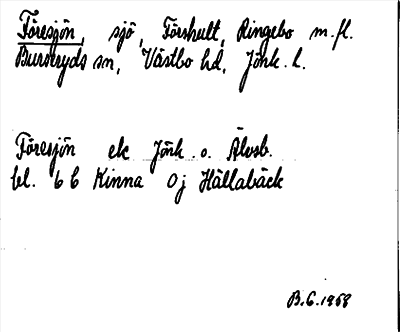 Töresjön, sjö, Törshult, Ringebo m.fl.
Burseryds sn, Västbo hd, Jönk. l.
Töresjön ek Jönk. o. Älvsb.
bl. 6 C Kinna 0j Hällabäck
B.G. 1968